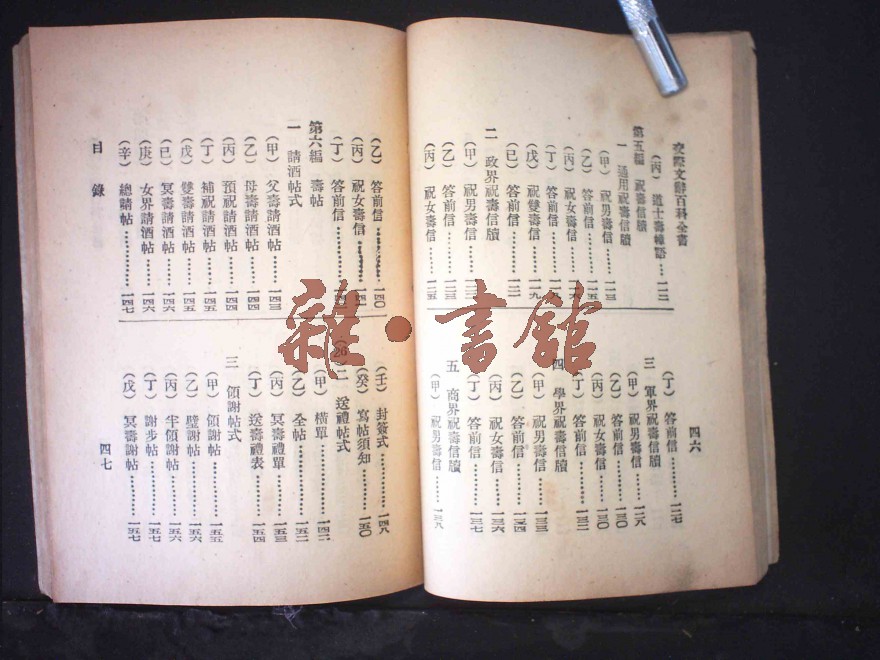 交際文辭百科全書
(丙) 道士壽幛語…一一二
第五編 祝壽信牘
一 通用祝壽信牘
(甲) 祝男壽信……一一三
(乙) 答前信………一一五
(丙) 祝女壽信……一一六
(丁) 答前信………一一八
(戊) 祝雙壽信……一一九
(己) 答前信………一二一
二 政界祝壽信牘
(甲) 祝男壽信……一二二
(乙) 答前信
(丙) 祝女壽信……一二五
四六
(丁) 答前信………一二七
三 軍界祝壽信牘
(甲) 祝男壽信……一二八
(乙) 答前信………一三〇
(丙) 祝女壽信……一三〇
(丁) 答前信………一三二
四 學界祝壽信牘
(甲) 祝男壽信……一三三
(乙) 答前信
(丙) 祝女壽信……一三六
(丁) 答前信………一三七
五 商界祝壽信牘
(甲) 祝男壽信……一三八
(乙) 答前信………一四〇
(丙) 祝女壽信
(丁) 答前信
第六編 壽帖
一 請酒帖式
(甲) 父壽請酒帖……一四三
(乙) 母壽請酒帖……一四四
(丙) 預祝請酒帖……一四四
(丁) 補祝請酒帖……一四五
(戊) 雙壽請酒帖……一四五
(己) 冥壽請酒帖……一四六
(庚) 女界請酒帖……一四六
(辛) 總請帖…………一四七
目錄
(壬) 封簽式…………一四八
(癸) 寫帖須知………一五〇
二 送禮帖式
(甲) 橫單
(乙) 全帖……………一五二
(丙) 冥壽禮單………一五三
(丁) 送壽禮表………一五四
三 領謝帖式
(甲) 領謝帖…………一五五
(乙) 璧謝帖…………一五六
(丙) 半領謝帖………一五六
(丁) 謝步帖…………一五七
(戊) 冥壽謝帖………一五七
四七
雜·書館
(26)